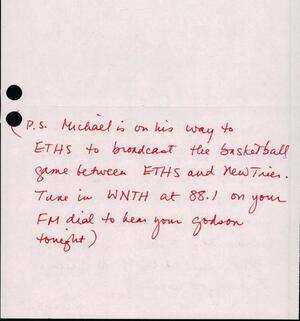 (P.S. Michael is on his way to
ETHS to broadcast the basketball
game between ETHS and New Trier.
Tune in WNTH at 88.1 on your
FM dial to hear your godson
tonight)